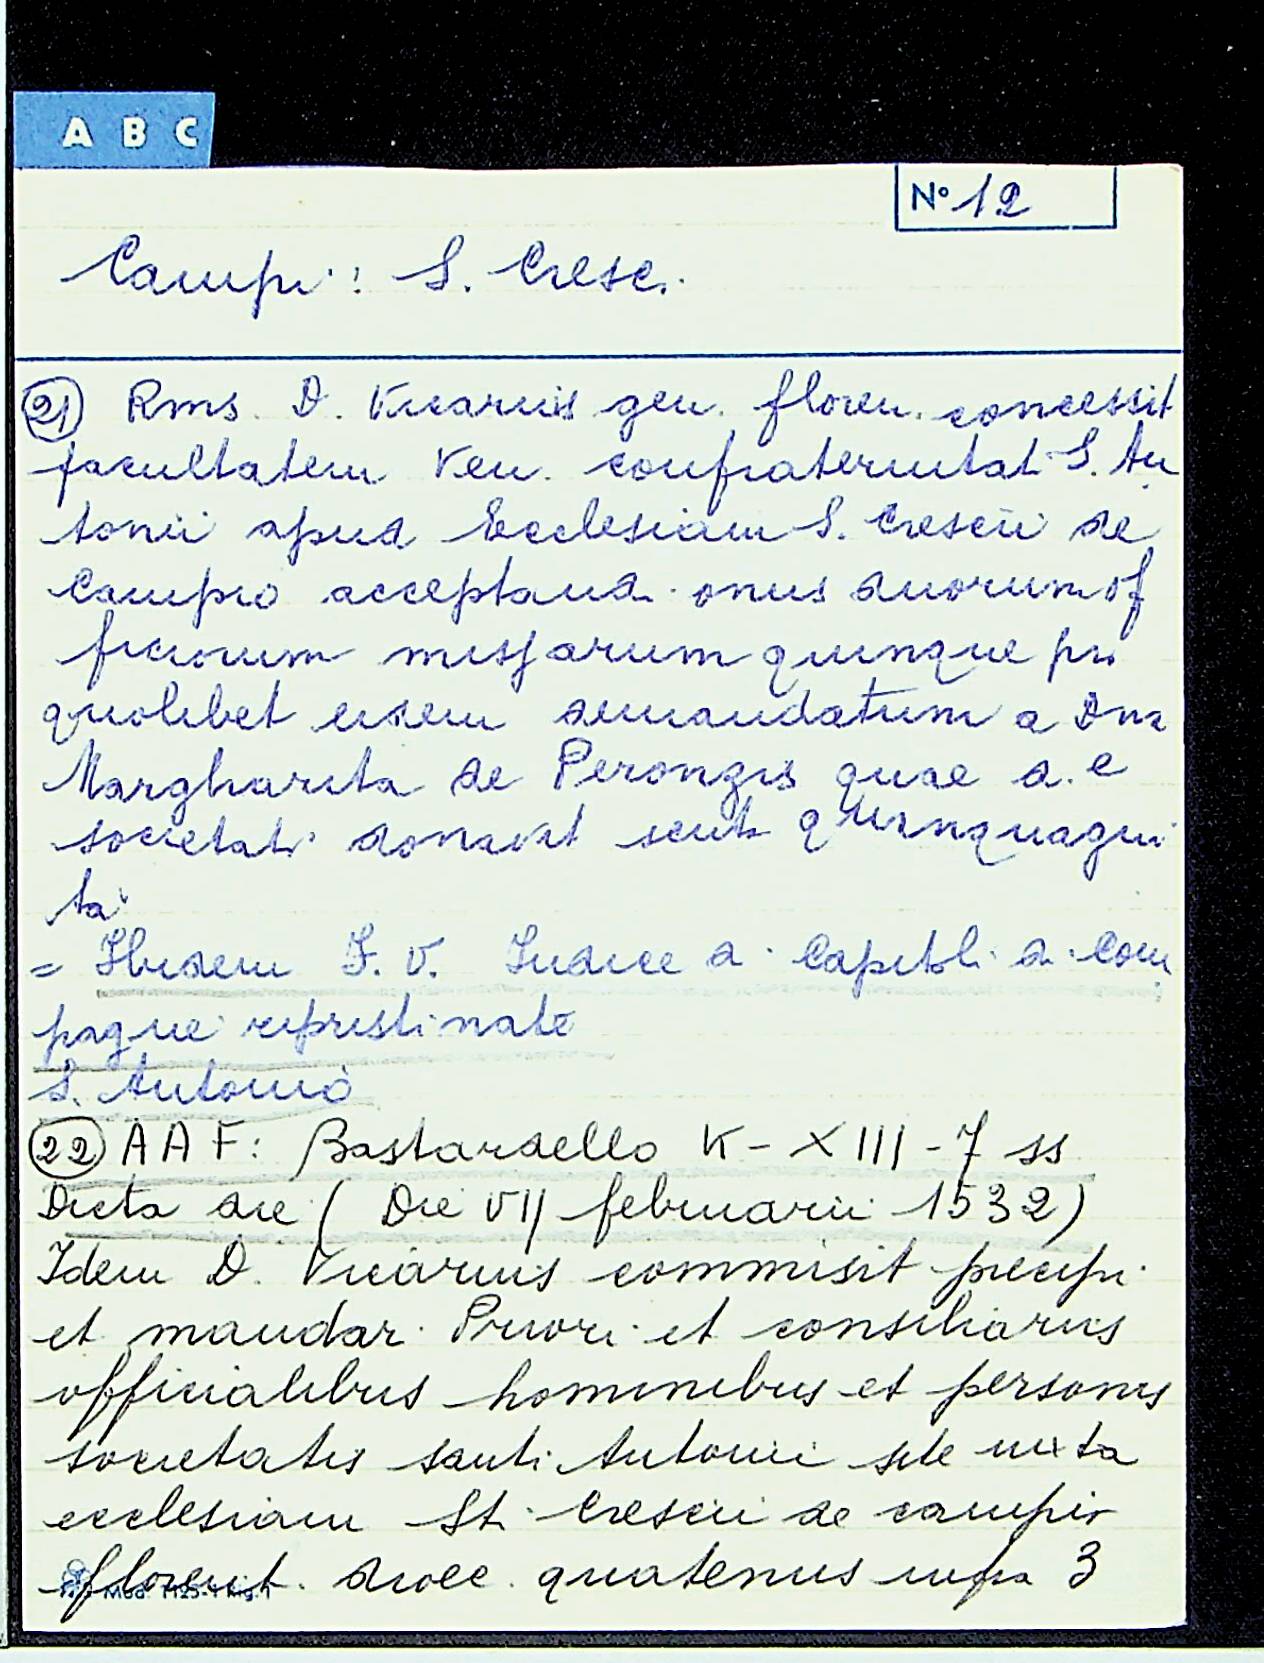 A B C
N° 12
Campi: S. Cresc.
21 Rms. D. Vicarius gen. floren. concessit
facultatem Ven. confraternitat. S. An
tonii apud Ecclesiam S. Crescii de
Campio acceptand. onus duorum of
ficiorum missarum quinque pro
quolibet eisem demandatum a Dna
Margharita de Peronzis quae d. e
societati donavit scuta quinquagin
ta
= Ibidem F. V. Indice d. Capitoli d. Com
pagnie ripristinate
S. Antonio
22 A A F: Bastardello K - XIII - 7 ss
Dicta die ( Die VII februarii 1532)
Idem D. Vicarius commisit precipi
et mandar. Priori et consiliariis
officialibus hominibus et personis
societatis santi Antonii site iuxta
ecclesiam St. Crescii de campis
florent. dioec. quatenus infra 3
Mod. 1125-1 Rig. 1